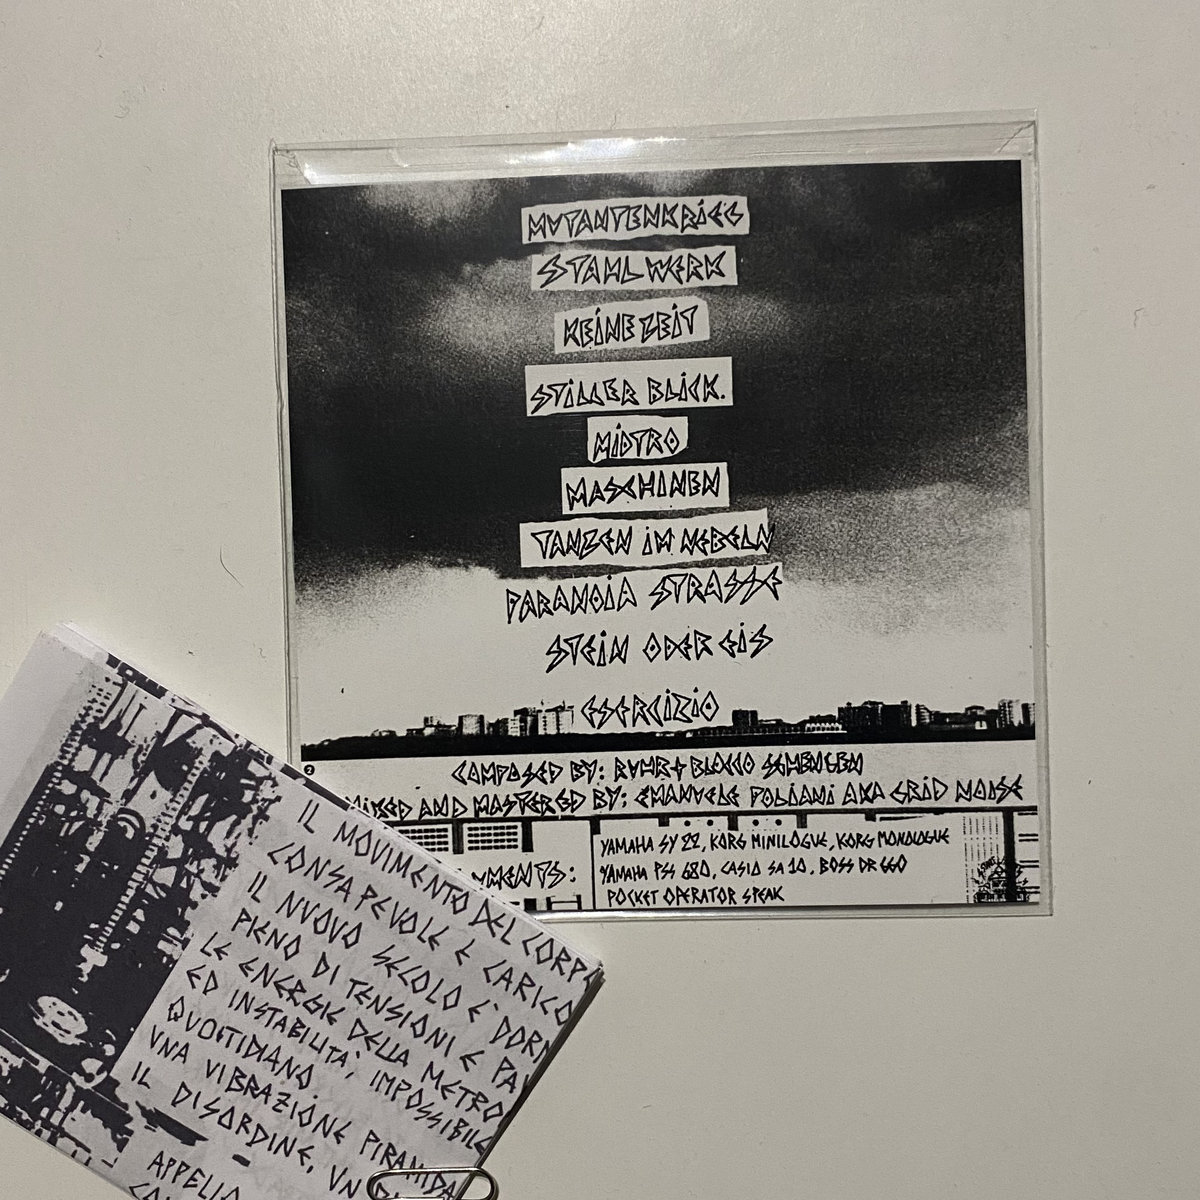 MUTANTENKRIEG
STAHLWERK
KEINE ZEIT
STILLER BLICK.
MIDTRO
MASCHINEN
TANZEN IM NEBELN
PARANOIA STRASSE
STEIN ODER EIS
ESERCIZIO
2
COMPOSED BY: RUHR + BLOCCO
MIXED AND MASTERED BY: EMANUELE POLIANI AKA GRID NOISE
UMENTS:
YAMAHA SY 22, KORG MINILOGUE, KORG MONOLOGUE
YAMAHA PSS 680, CASIO SA 10, BOSS DR 660
POCKET OPERATOR SPEAK
IL MOVIMENTO DEL CORPO
CONSAPEVOLE E CARICO
IL NUOVO SECOLO È DORM
PIENO DI TENSIONI E PA
LE ENERGIE DELLA METRO
ED INSTABILITA', IMPOSSIBILE
QUOTIDIANO.
UNA VIBRAZIONE PIRAMIDA
IL DISORDINE, UN
APPELLO